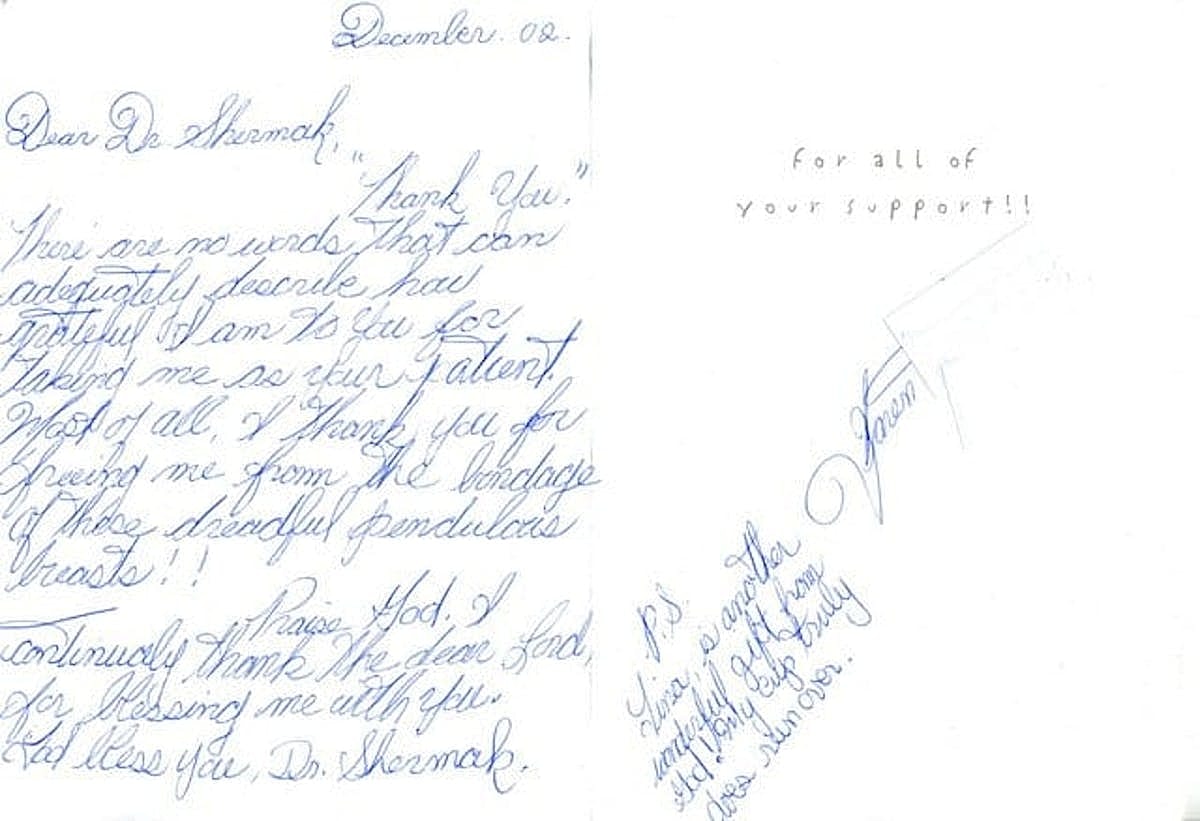 December. 02.
Dear Dr. Shermak,
"Thank You."
There are no words that can
adequately describe how
grateful I am to you for
taking me as your patient.
Most of all, I thank you for
freeing me from the bondage
of those dreadful pendulous
breasts!!
Praise God. I
continually thank the dear Lord,
for blessing me with you.
God bless you, Dr. Shermak.
for all of
your support!!
Karem
P.S.
Lina is another
wonderful gift from
God. My cup truly
does run over.